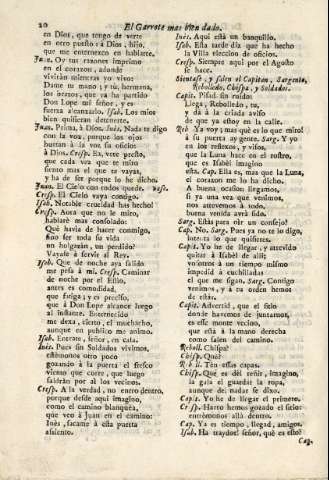 20
El Garrote mas bien dado.
en Dios, que tengo de verte
en otro puesto: à Dios, hijo,
que me enternezco en hablarte.
Juan. Oy tus razones imprimo
en el corazon, adonde
vivirán mientras yo vivo:
Dame tu mano; y tù, hermana,
los brazos, que ya ha partido
Don Lope mi señor, y es
fuerza alcanzarlo. Isab. Los mios
bien quisieran detenerte.
Juan. Prima, à Dios. Inès. Nada te digo
con la voz, porque los ojos
hurtan à la voz su oficio:
à Dios. Cresp. Ea, vete presto,
que cada vez que te miro
siento mas el que te vayas,
y ha de ser, porque lo he dicho.
Juan. El Cielo con todos quede. vase.
Cresp. El Cielo vaya contigo.
Isab. Notable crueldad has hecho!
Cresp. Aora que no le miro,
hablarè mas consolado:
Què havia de hacer conmigo,
sino ser toda su vida
un holgazàn, un perdido?
Vayase à servir al Rey.
Isab. Que de noche aya salido
me pesa à mì. Cresp. Caminar
de noche por el Estìo,
antes es comodidad,
que fatiga; y es preciso,
que à Don Lope alcance luego
al instante. Enternecido
me dexa, cierto, el muchacho,
aunque en publico me animo.
Isab. Entrate, señor, en casa.
Inès. Pues sin Soldados vivimos,
estèmonos otro poco
gozando à la puerta el fresco
viento que corre, que luego
saldràn por aì los vecinos.
Cresp. A la verdad, no entro dentro,
porque desde aqui imagino,
como el camino blanquèa,
que veo à Juan en el camino:
Inès, sacame à esta puerta
asiento.
Inès. Aquì està un banquillo.
Isab. Esta tarde diz que ha hecho
la Villa eleccion de oficios.
Cresp. Siempre aqui por el Agosto
se hace.
Sientase, y salen el Capitan, Sargento,
Rebolledo, Chispa, y Soldados.
Capit. Pisad sin ruido:
Llega, Rebolledo, tu,
y dà à la criada aviso
de que ya estoy en la calle.
Reb. Yo voy; mas què es lo que miro!
à su puerta ay gente. Sarg. Y yo
en los reflexos, y visos,
que la Luna hace en el rostro,
que es Isabèl imagino
esta. Cap. Ella es, mas que la Luna,
el corazon me lo ha dicho.
A buena ocasion llegamos,
si ya una vez que venimos,
nos atrevemos à todo,
buena venida avrà sido.
Sarg. Estàs para oìr un consejo?
Cap. No. Sarg. Pues ya no te lo digo,
intenta lo que quisieres.
Capit. Yo he de llegar, y atrevido
quitar à Isabèl de allì;
vosotros à un tiempo mismo
impedid à cuchilladas
el que me sigan. Sarg. Contigo
venimos, y à tu orden hemos
de estàr.
Capit. Advertid, que el sitio
donde havemos de juntarnos,
es esse monte vecino,
que està à la mano derecha
como salen del camino.
Reboll. Chispa?
Chisp. Què?
Reboll. Ten essas capas.
Chisp. Que es del reñir, imagino,
la gala el guardar la ropa,
aunque de nadar se dixo.
Capit. Yo he de llegar el primero.
Cresp. Harto hemos gozado el sitio:
entrèmonos allà dentro.
Cap. Ya es tiempo, llegad, amigos.
Isab. Ha traydor! señor, què es esto?
Cap.